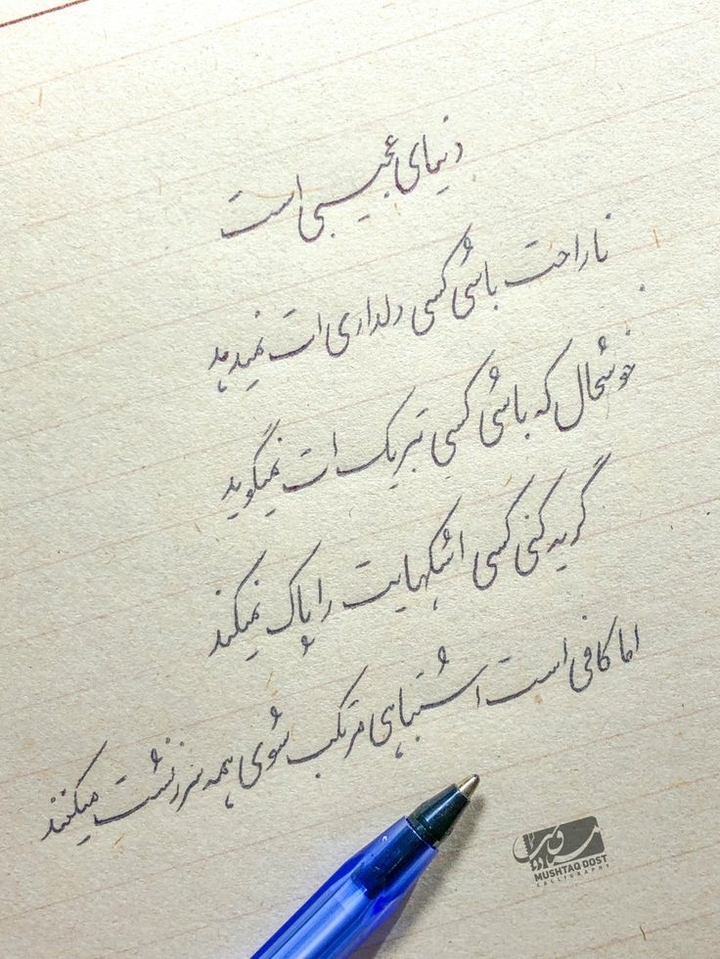 دنیای عجیبی است
ناراحت باشی کسی دلداری ات نمیدهد
خوشحال که باشی کسی تبریک ات نمیگوید
گریه کنی کسی اشکهایت را پاک نمیکند
اما کافی است اشتباهی مرتکب شوی همه سرزنشت میکنند
MUSHTAQ DOST
CALLIGRAPHY